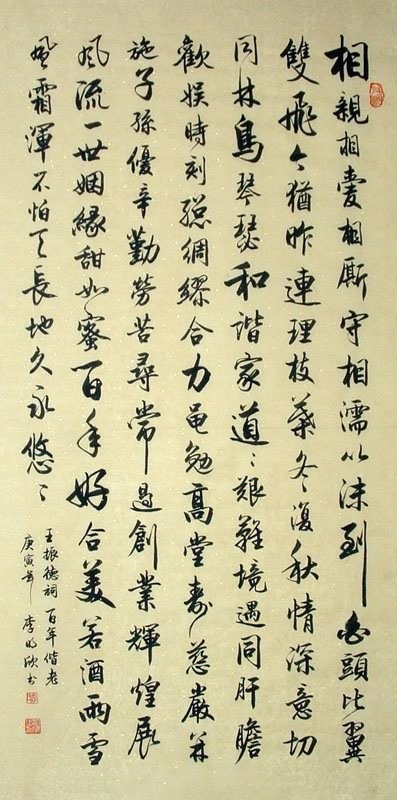 相親相愛相廝守相濡以沫到白頭比翼
雙飛今猶昨連理枝葉冬復秋情深意切
同林鳥琴瑟和諧家道〻艱難境遇同肝膽
歡娛時刻總綢繆合力黽勉高堂壽慈嚴並
施子孫優辛勤勞苦尋常過創業輝煌展
風流一世姻緣甜如蜜百年好合美若酒雨雪
風霜渾不怕天長地久永悠〻
王振德詞 百年偕老
庚寅年 李明欣書